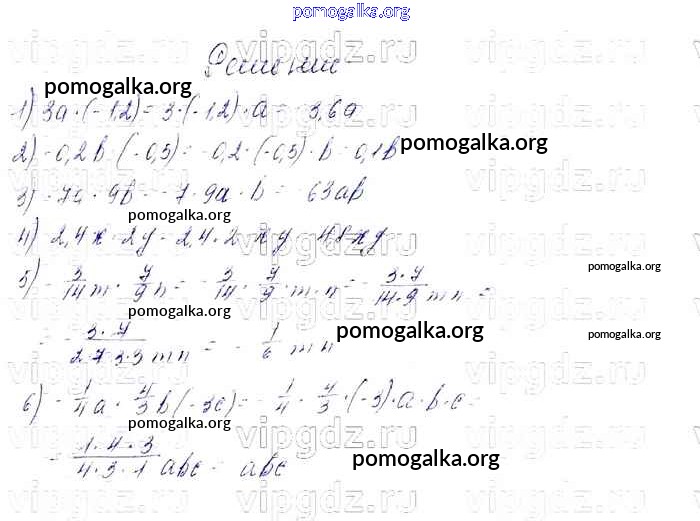 pomogalka.org
Решение
pomogalka.org
1) 3a · (-1,2) = 3 · (-1,2) · a = -3,6a
2) -0,2b · (-0,5) = -0,2 · (-0,5) · b = 0,1b pomogalka.org
3) -7a · 9b = -7 · 9a · b = -63ab
pomogalka.org
4) 2,4x · 2y = 2,4 · 2 · xy = 4,8xy
pomogalka.org
5) -3/14 m · 7/9 n = -3/14 · 7/9 · m · n = -3·7/14·9 mn =
pomogalka.org
pomogalka.org
pomogalka.org
= -3·7/2·7·3·3 mn = -1/6 mn
6) -1/4 a · 4/3 b (-3c) = -1/4 · 4/3 · (-3) · a · b · c =
pomogalka.org
= 1·4·3/4·3·1 abc = abc
pomogalka.org
vipgdz.ru